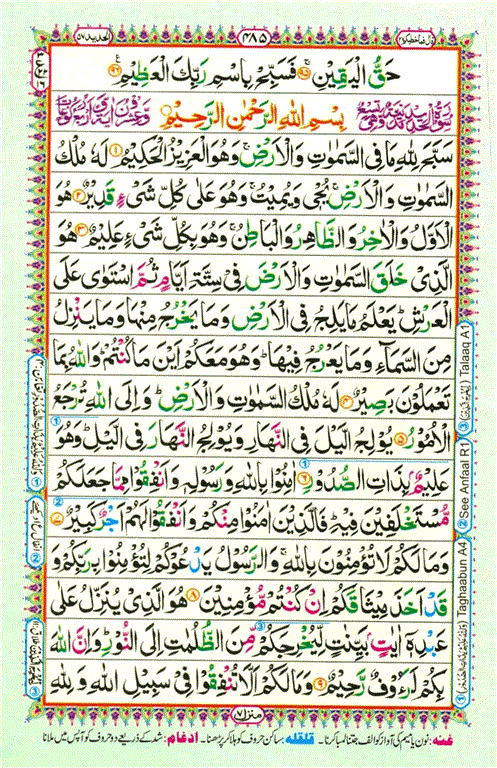 الحديد ٥٧
٤٨٥
قال فما خطبكم ٢٧
حَقُّ الْيَقِيْنِ ۚ‏﴿۹۵﴾ فَسَبِّحْ بِاسْمِ رَبِّكَ الْعَظِيْمِ ﴿۹۶﴾
بِسْمِ اللّٰهِ الرَّحْمٰنِ الرَّحِيْمِ
سَبَّحَ لِلّٰهِ مَا فِى السَّمٰوٰتِ وَالْاَرْضِ ۚ وَهُوَ الْعَزِيْزُ الْحَكِيْمُ ﴿۱﴾ لَهٗ مُلْكُ
السَّمٰوٰتِ وَالْاَرْضِ ۚ يُحْىٖ وَيُمِيْتُ ۚ وَهُوَ عَلٰى كُلِّ شَىْءٍ قَدِيْرٌ ﴿۲﴾ هُوَ
الْاَوَّلُ وَالْاٰخِرُ وَالظَّاهِرُ وَالْبَاطِنُ ۚ وَهُوَ بِكُلِّ شَىْءٍ عَلِيْمٌ ﴿۳﴾ هُوَ
الَّذِىْ خَلَقَ السَّمٰوٰتِ وَالْاَرْضَ فِىْ سِتَّةِ اَيَّامٍ ثُمَّ اسْتَوٰى عَلَى
الْعَرْشِ ؕ يَعْلَمُ مَا يَلِجُ فِى الْاَرْضِ وَمَا يَخْرُجُ مِنْهَا وَمَا يَنْزِلُ
مِنَ السَّمَآءِ وَمَا يَعْرُجُ فِيْهَا ؕ وَهُوَ مَعَكُمْ اَيْنَ مَا كُنْتُمْ ؕ وَاللّٰهُ بِمَا
تَعْمَلُوْنَ بَصِيْرٌ ﴿۴﴾ لَهٗ مُلْكُ السَّمٰوٰتِ وَالْاَرْضِ ؕ وَاِلَى اللّٰهِ تُرْجَعُ
الْاُمُوْرُ ﴿۵﴾ يُوْلِجُ الَّيْلَ فِى النَّهَارِ وَيُوْلِجُ النَّهَارَ فِى الَّيْلِ ؕ وَهُوَ
عَلِيْمٌۢ بِذَاتِ الصُّدُوْرِ ﴿۶﴾ اٰمِنُوْا بِاللّٰهِ وَرَسُوْلِهٖ وَاَنْفِقُوْا مِمَّا جَعَلَكُمْ
مُّسْتَخْلَفِيْنَ فِيْهِ ؕ فَالَّذِيْنَ اٰمَنُوْا مِنْكُمْ وَاَنْفَقُوْا لَهُمْ اَجْرٌ كَبِيْرٌ ﴿۷﴾
وَمَا لَكُمْ لَا تُؤْمِنُوْنَ بِاللّٰهِ ۚ وَالرَّسُوْلُ يَدْعُوْكُمْ لِتُؤْمِنُوْا بِرَبِّكُمْ وَ
قَدْ اَخَذَ مِيْثَاقَكُمْ اِنْ كُنْتُمْ مُّؤْمِنِيْنَ ﴿۸﴾ هُوَ الَّذِىْ يُنَزِّلُ عَلٰى
عَبْدِهٖۤ اٰيٰتٍۭ بَيِّنٰتٍ لِّيُخْرِجَكُمْ مِّنَ الظُّلُمٰتِ اِلَى النُّوْرِ ؕ وَاِنَّ اللّٰهَ
بِكُمْ لَرَءُوْفٌ رَّحِيْمٌ ﴿۹﴾ وَمَا لَكُمْ اَلَّا تُنْفِقُوْا فِىْ سَبِيْلِ اللّٰهِ وَلِلّٰهِ
منزل ٧
غنه: نون یا میم کی آواز کو الف جتنا لمبا کرنا۔ قلقله: ساکن حروف کو ہلا کر پڑھنا۔ ادغام: شد کے ذریعے دو حروف کو آپس میں ملانا
③ Talaaq A1
② See Anfaal R1
① Taghaabun A4